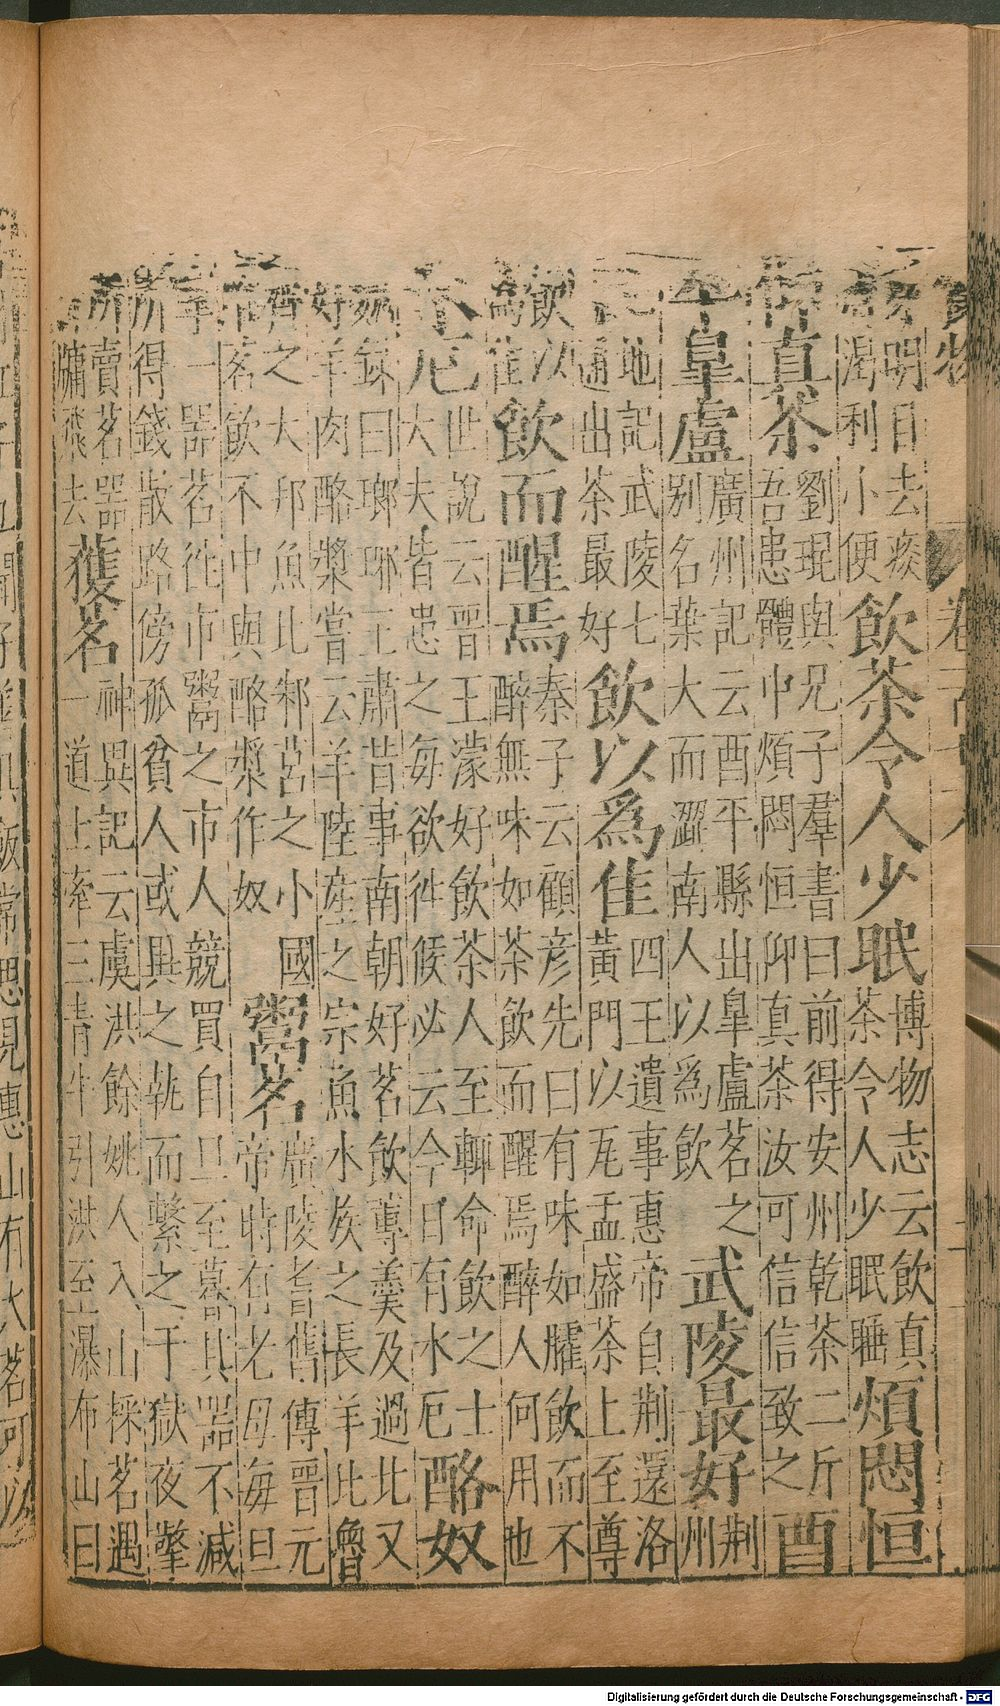 明目去痰
渴利小便
飲茶令人少眠
博物志云飲真
茶令人少眠睡
煩悶恒
仰真茶
劉琨與兄子羣書曰前得安州乾茶二斤
吾患體中煩悶恒仰真茶汝可信信致之
酉
平皐盧
廣州記云酉平縣出皐盧茗之
别名葉大而澀南人以為飲
武陵最好
荆
州
地記武陵七
通出茶最好
飲以爲佳
四王遺事惠帝自荆還洛
黃門以瓦盂盛茶上至尊
飲以
為佳
飲而醒焉
秦子云顧彥先曰有味如臛飲而不
醉無味如茶飲而醒焉醉人何用也
水厄
世說云晉王濛好飲茶人至輒命飲之士
大夫皆患之每欲徃候必云今日有水厄
酪奴
錄曰瑯琊王肅昔事南朝好茗飲蓴羹及過北又
好羊肉酪漿嘗云羊陸產之宗魚水族之長羊比魯
齊之大邦魚比邾莒之小國
茗飲不中與酪漿作奴
鬻茗
廣陵耆舊傳晉元
帝時有老母每旦
一器茗徃市鬻之市人競買自旦至暮其器不減
所得錢散路傍孤貧人或異之執而繫之于獄夜擎
所賣茗器
牖飛去
獲茗
神異記云虞洪餘姚人入山採茗遇
一道上牽三青牛引洪至瀑布山曰
Digitalisierung gefördert durch die Deutsche Forschungsgemeinschaft - DFG